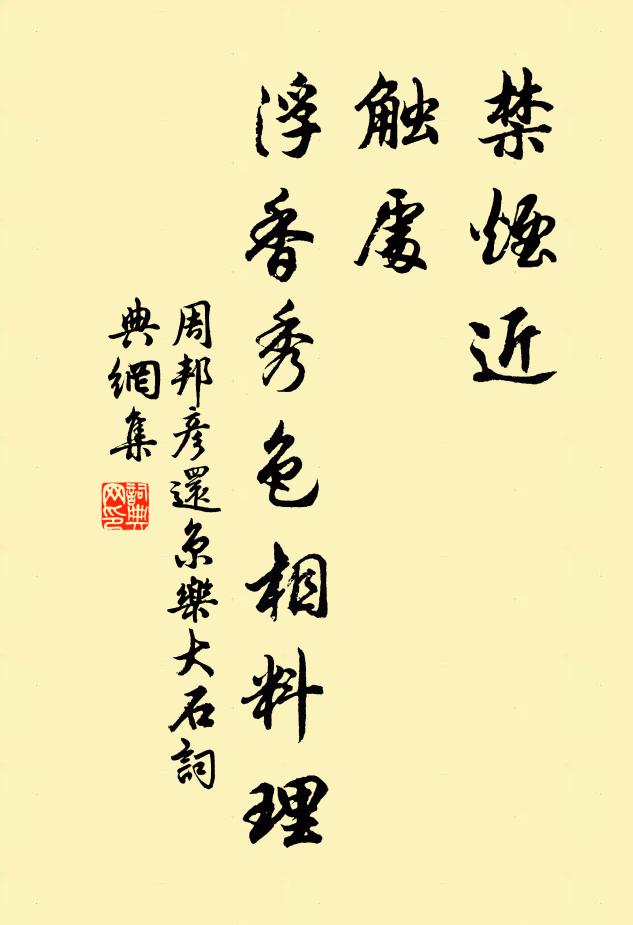 禁煙近
触處
浮香秀色相料理
周邦彦還京樂大石詞
典網集
詞典網印